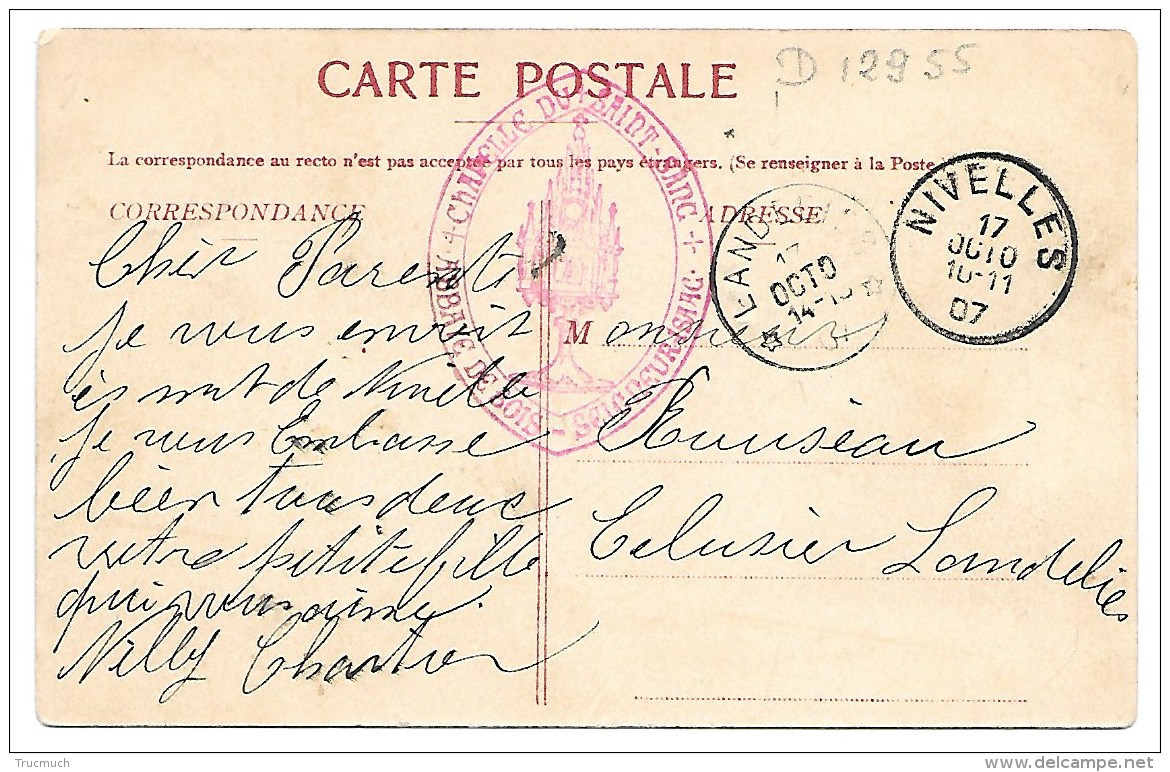 D 12955
CARTE POSTALE
La correspondance au recto n'est pas acceptée par tous les pays étrangers. (Se renseigner à la Poste
CORRESPONDANCE
ADRESSE
CHAPELLE DU SAINT-SANG + ABBAYE DE BOIS-SEIGNEUR-ISAAC
LANDELIES
17
OCTO
NIVELLES
17
OCTO
10-11
07
Chèr Parent
je vous envoit
je vous Embrasse
bien tous deux
votre petite fille
qui vous aime.
Nelly Chartier
Monsieur
Rousseau
Eclusier Landelies
Trucmuch
delcampe.net